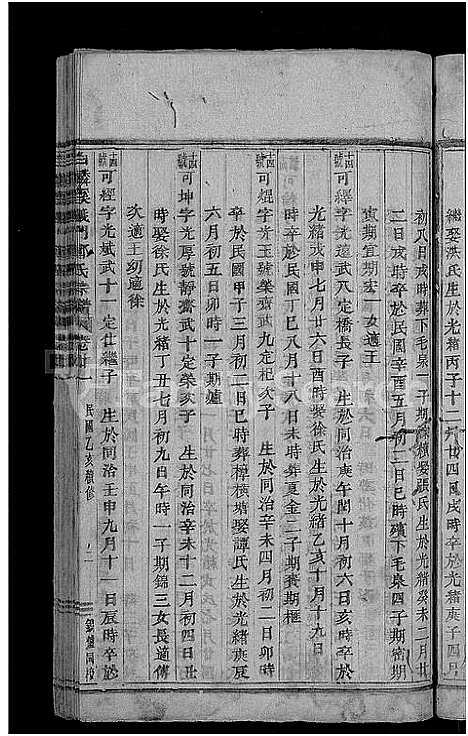 繼娶洪氏生於光緒丙子十二月廿四日戌時卒於光緒庚子四月
初八日戌時葬下毛泉一子期 續娶張氏生於光緒癸未二月廿
二日戌時卒於民國辛酉五月初二日巳時殯下毛泉四子期密期
寅期宜期宏一女適王
十四號可經字光遠武八定橋長子 生於同治庚午閏十月初六日亥時卒於
光緒戊申七月廿六日酉時娶徐氏生於光緒乙亥十月十九日
時卒於民國丁巳八月十六日未時葬夏金二子期 期樞
十四號可焜字光玉號 齋武九定杞次子 生於同治辛未四月初二日卯時
卒於民國甲子三月初二日巳時葬樟橫塘娶譚氏生於光緒庚辰
六月初五日卯時一子期爐
十四號可坤字光厚號靜齋武十定榮次子 生於同治辛未十二月初四日丑
時娶徐氏生於光緒丁丑七月初九日午時一子期錦三女長適傅
次適王幼適徐
十四號可經字光斌武十一定仕繼子 生於同治壬申九月十一日辰時卒於
白麟溪義門鄭氏宗譜 卷 十一
民國乙亥續修